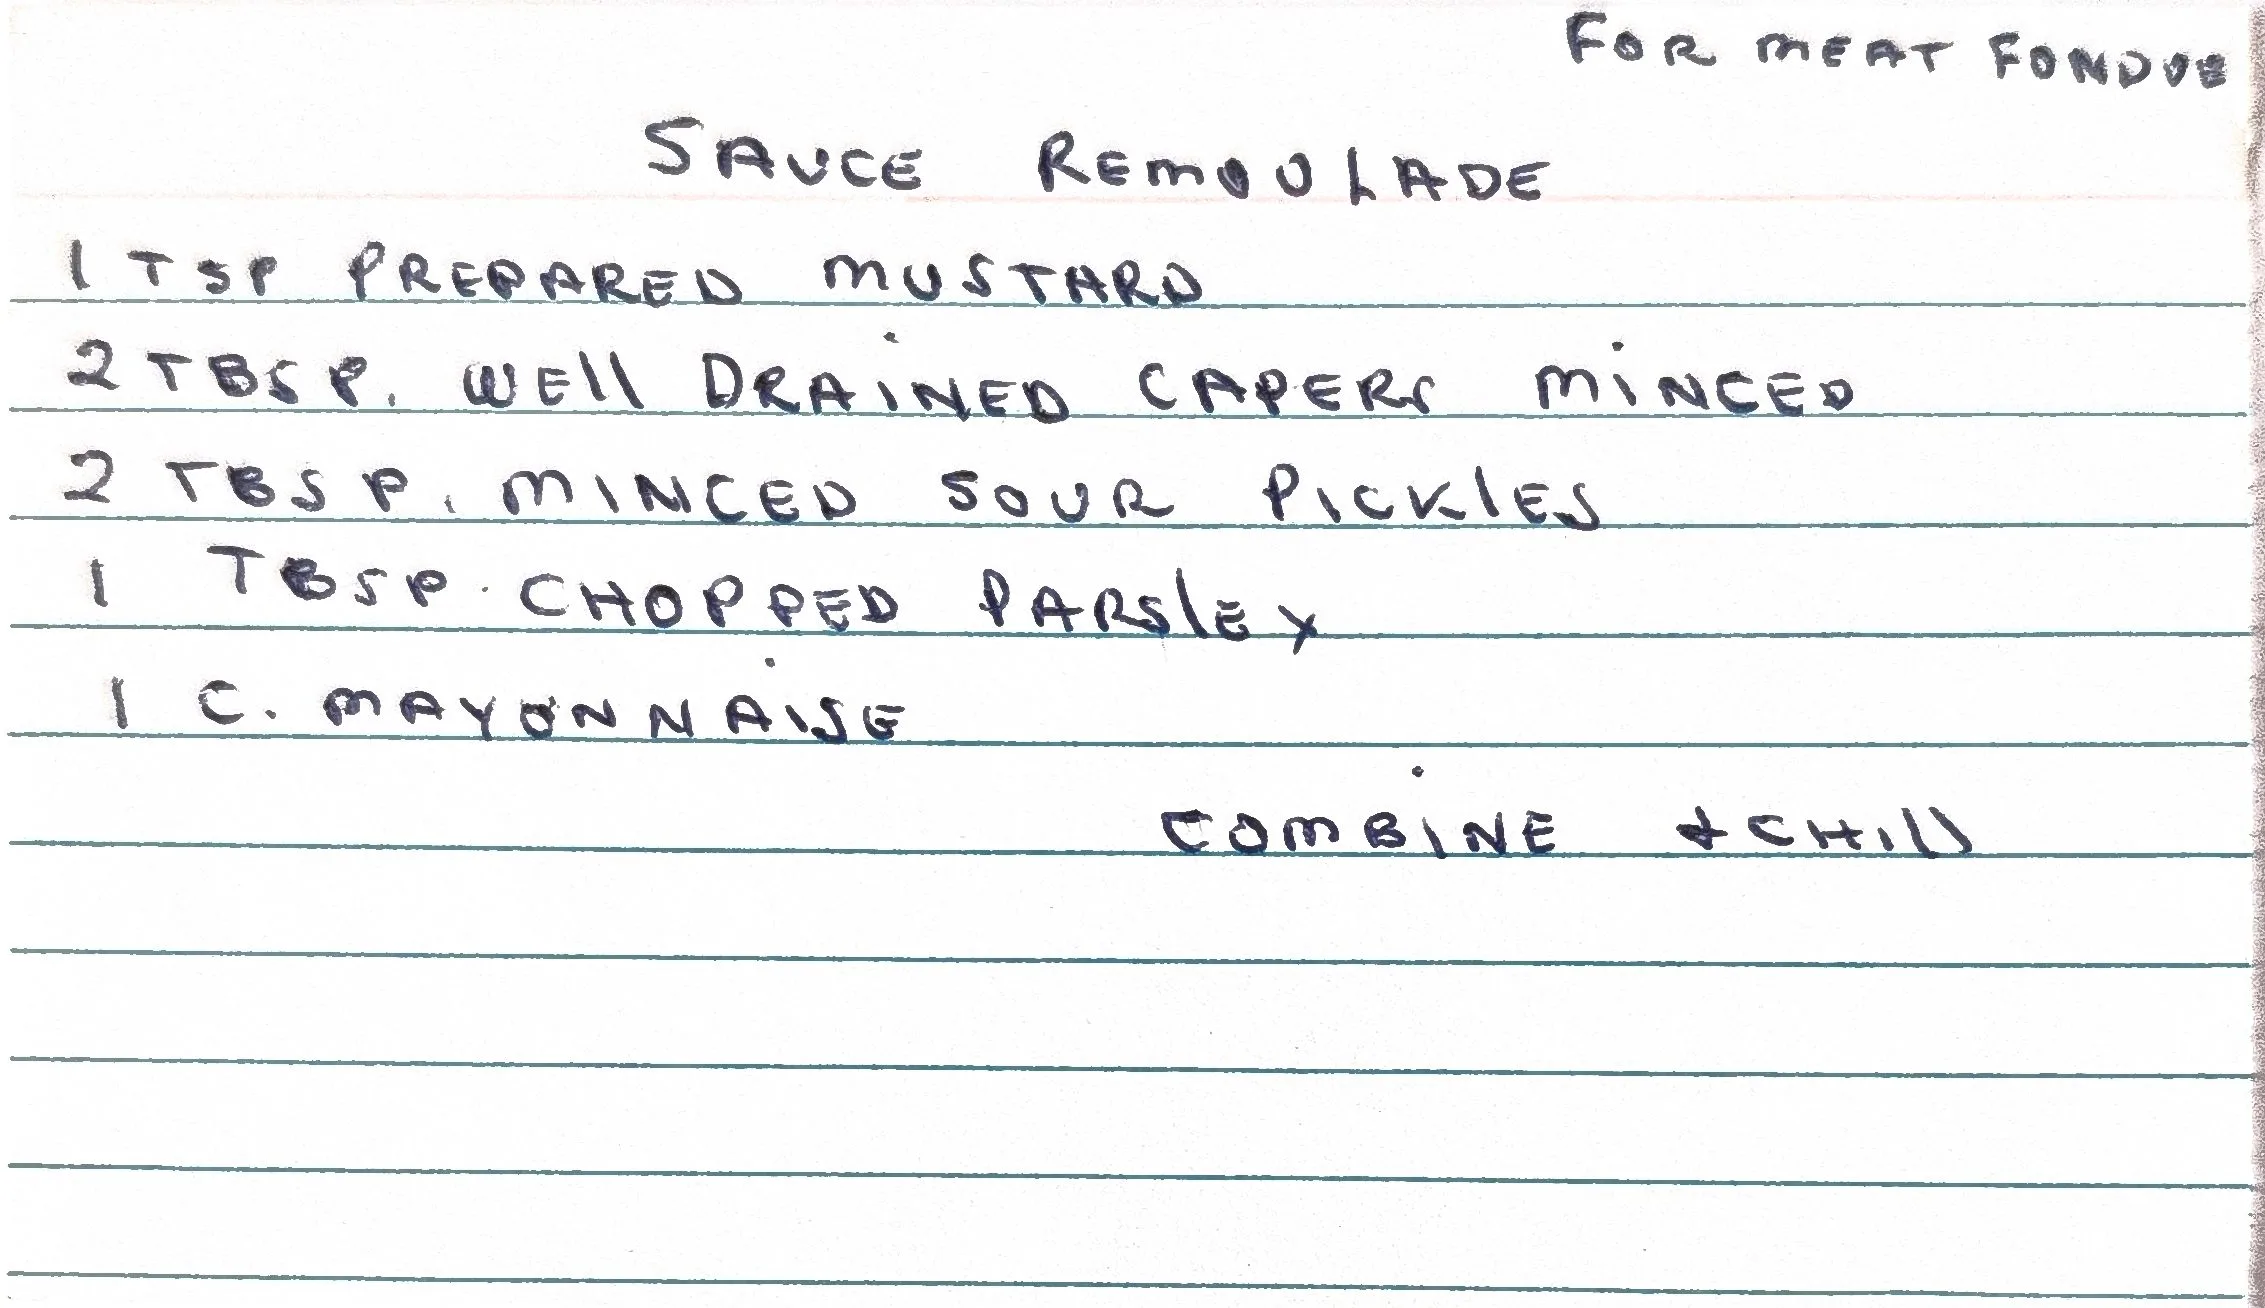 FOR MEAT FONDUE
SAUCE REMOULADE
1 TSP PREPARED MUSTARD
2 TBSP. WEll DRAiNED CAPERS MiNCED
2 TBSP. MINCED SOUR PICKlES
1 TBSP. CHOPPED PARSlEY
1 C. MAYONNAiSE
COMBiNE & CHill